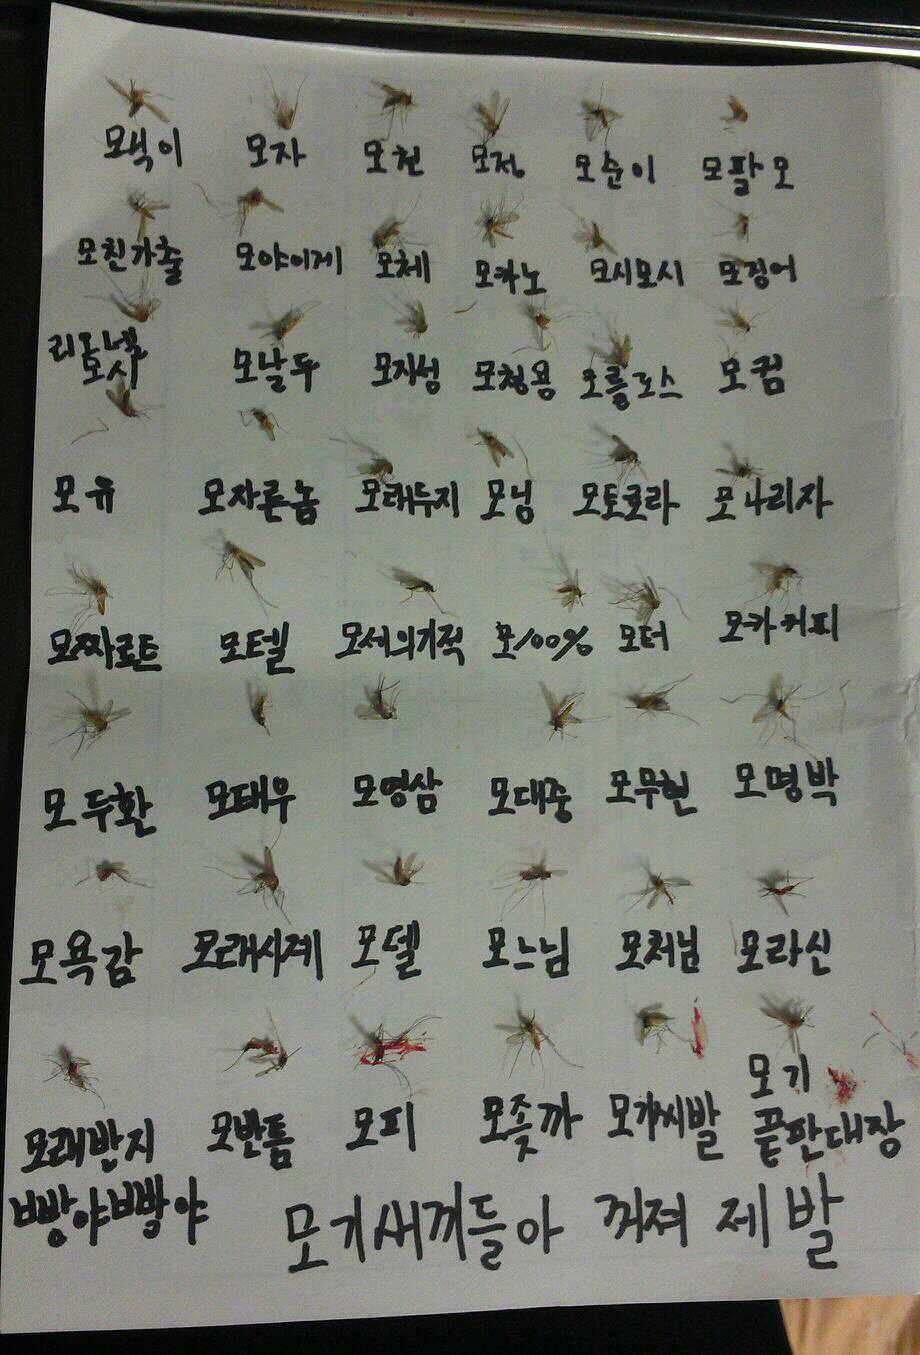 모식이 모자 모천 모정 모순이 모팔모
모친가출 모야이게 모체 모카노 모시모시 모징어
리오넬
모시 모날두 모지성 모청용 모를포스 모컴
모유 모자른놈 모래두지 모님 모토로라 모나리자
모짜르트 모텔 모세의기적 모100% 모터 모카커피
모두환 모태우 모영삼 모대중 모무현 모명박
모욕감 모래시계 모델 모느님 모처님 모라신
모래반지 모반톰 모피 모좆까 모기씨발 모기
끝판대장
빠빵야빠빵야
모기새끼들아 꺼져 제발